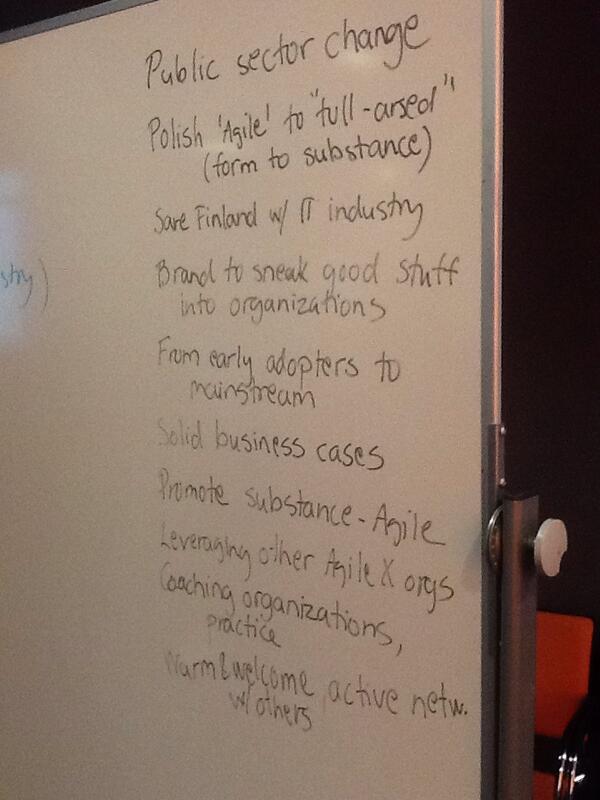 Public sector change
Polish 'Agile' to "full-arsed"
(form to substance)
Save Finland w/ IT industry
stry)
Brand to sneak good stuff
into organizations
From early adopters to
mainstream
Solid business cases
Promote substance-Agile
Leveraging other Agile X orgs
Coaching organizations,
practice
Warm & welcome, active netw.
w/others